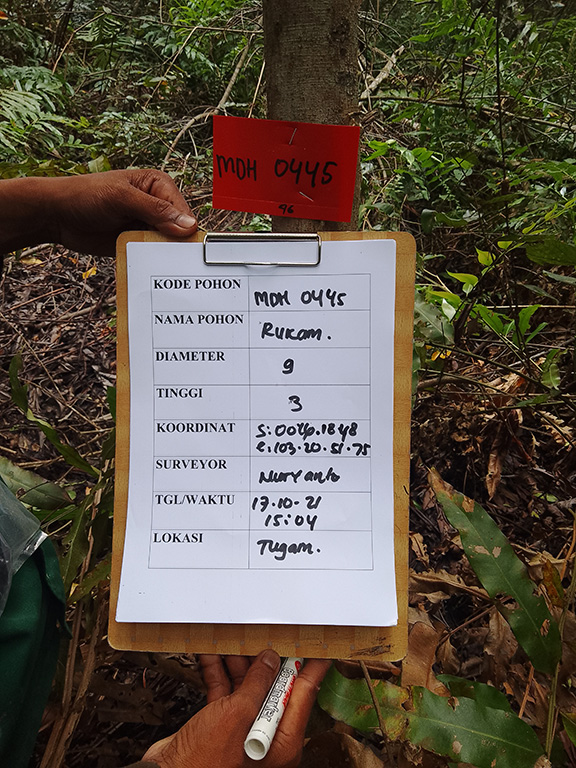 MDH 0445
96
KODE POHON MDH 0445
NAMA POHON Rukam.
DIAMETER 9
TINGGI 3
KOORDINAT S:0026.1848
e:103.20.51.75
SURVEYOR Nuryanto
TGL/WAKTU 17.10-21
15:04
LOKASI Tugam.
Boardmarker